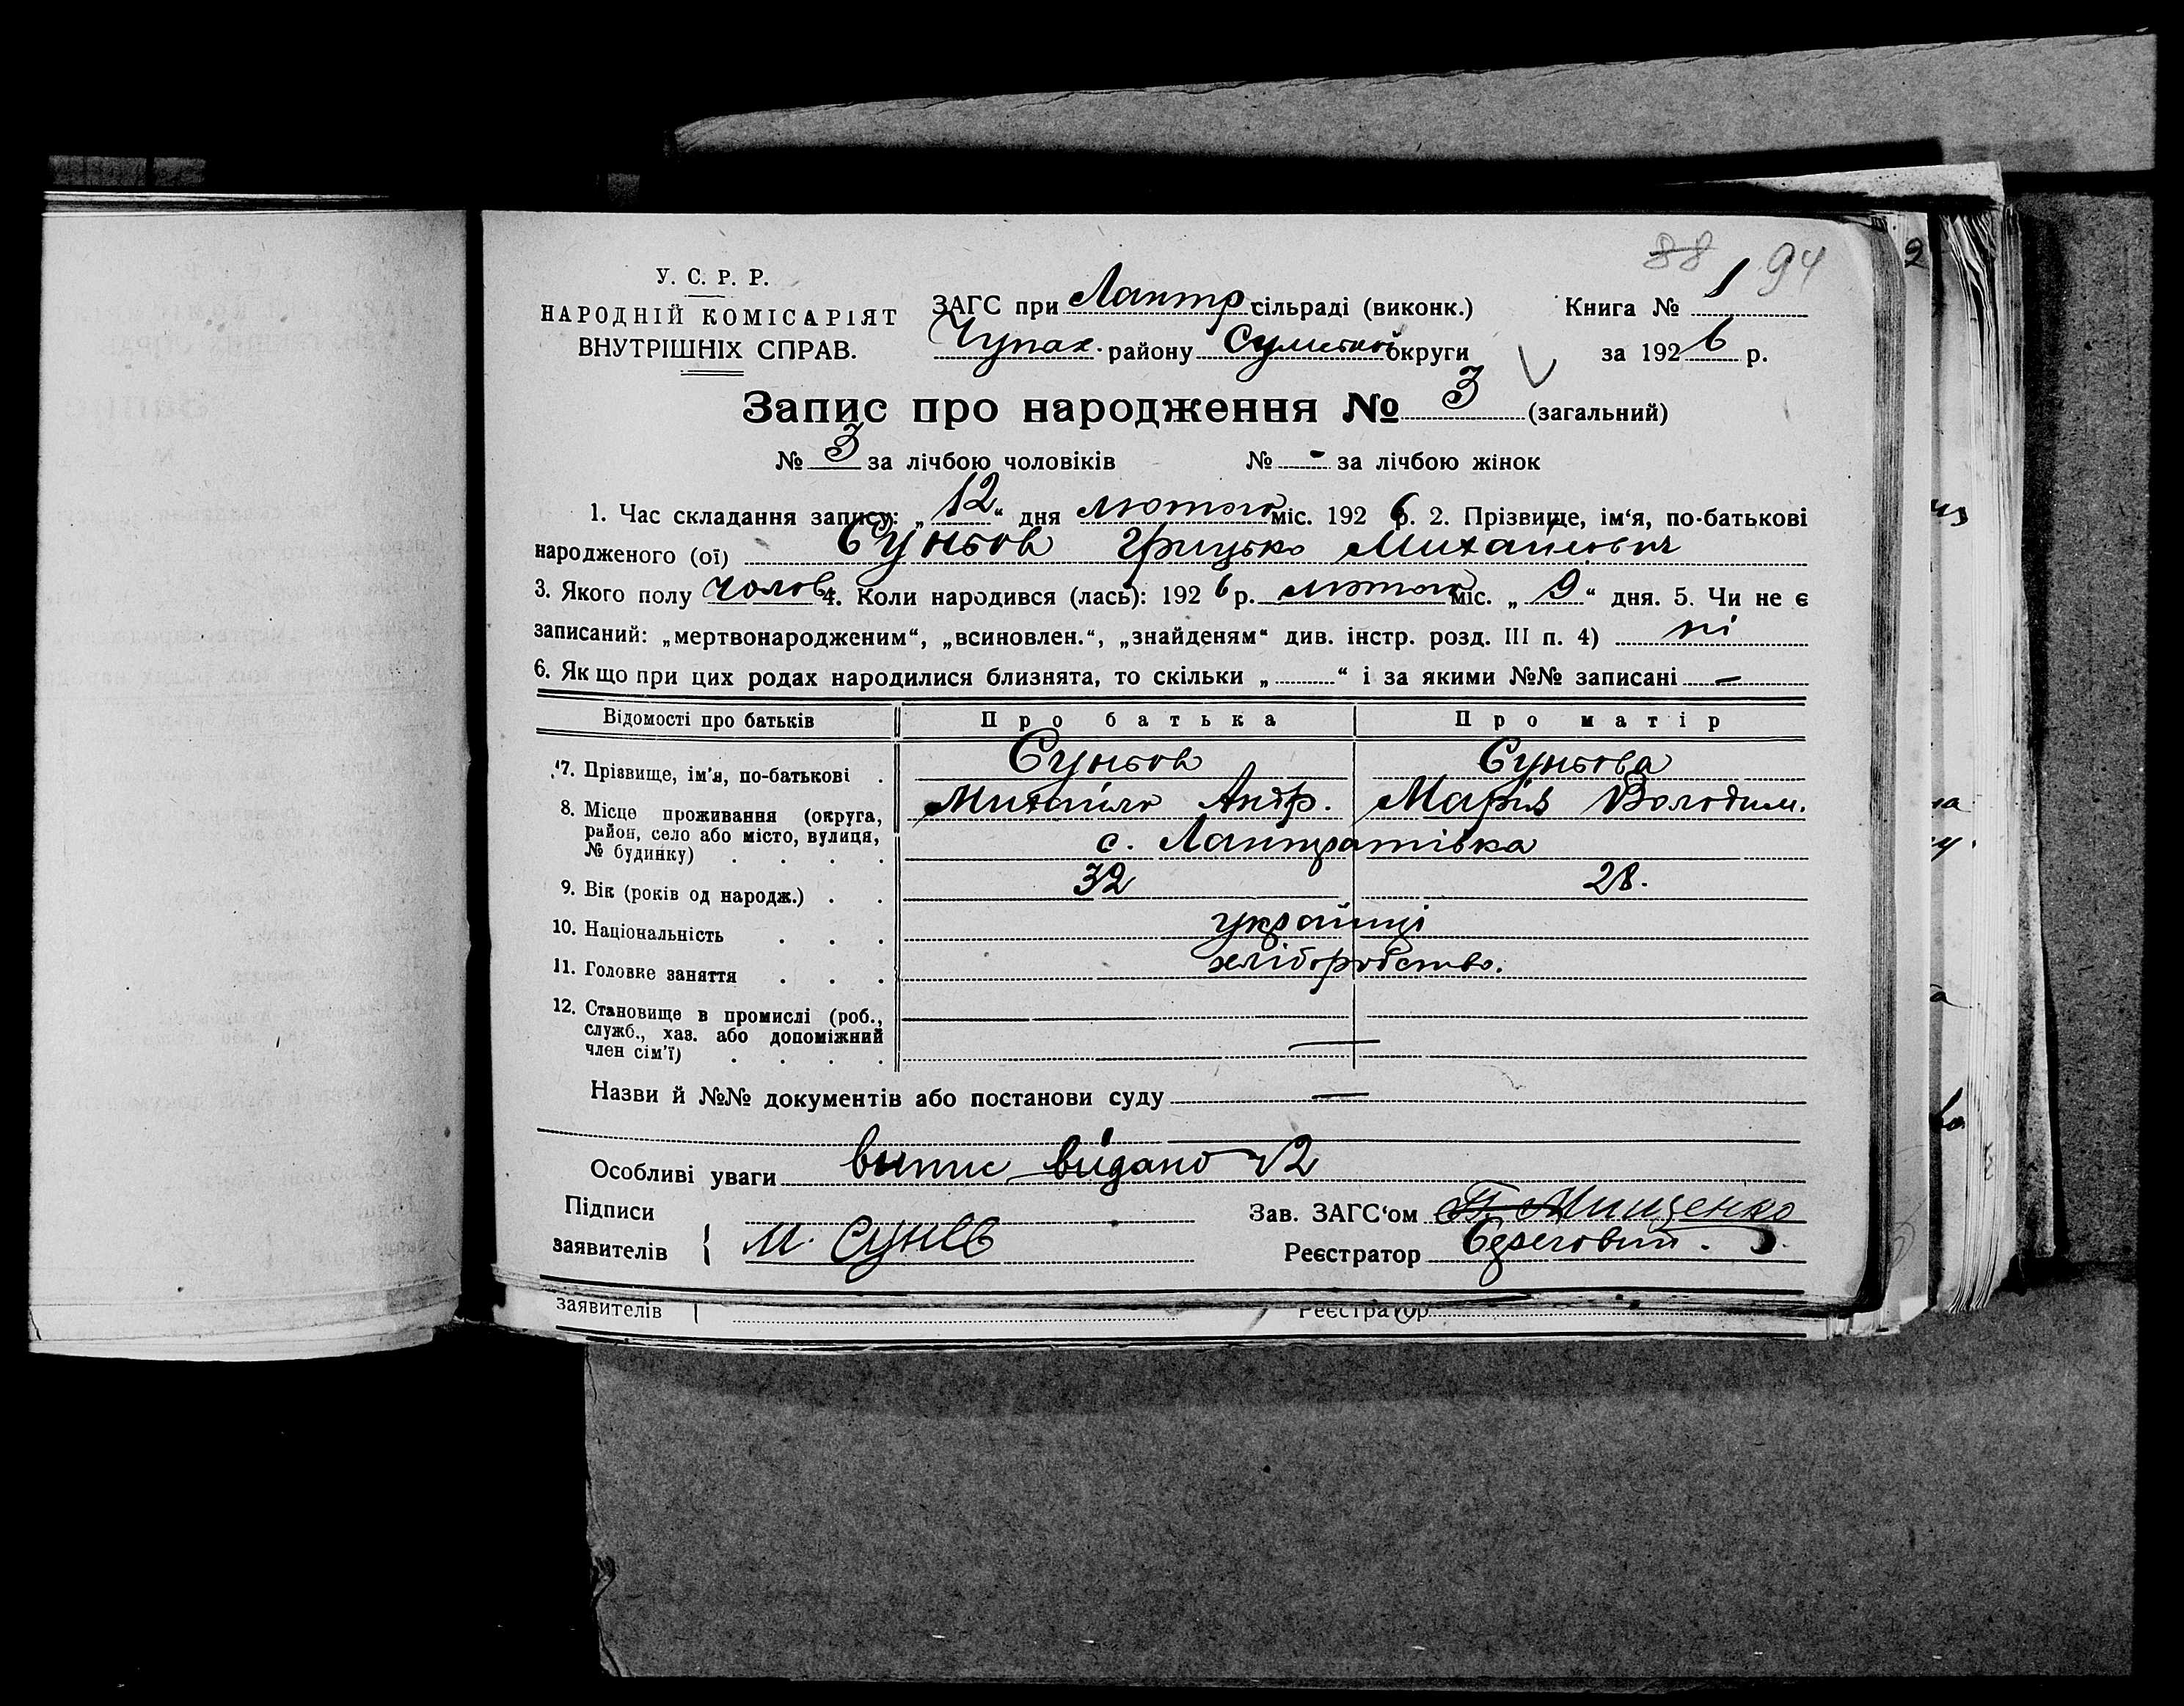 88 94
У. С. Р. Р.
НАРОДНІЙ КОМІСАРІЯТ
ВНУТРІШНІХ СПРАВ.
ЗАГС при Лантр сільраді (виконк.)
Чупах. району Сумської округи
Книга № 1
за 1926 р.
Запис про народження № 3 (загальний)
№ 3 за лічбою чоловіків № - за лічбою жінок
1. Час складання запису: „12“ дня лютого міс. 1926 р. 2. Прізвище, ім‘я, по-батькові
народженого (ої) Суньов Грицько Михайлович
3. Якого полу чолов 4. Коли народився (лась): 1926 р. лютого міс. „9“ дня. 5. Чи не є
записаний: „мертвонародженим“, „всиновлен.“, „знайденям“ див. інстр. розд. III п. 4) ні
6. Якщо при цих родах народилися близнята, то скільки „ “ і за якими №№ записані —
Відомості про батьків Про батька Про матір
7. Прізвище, ім‘я, по-батькові . Суньов Суньова
Михайло Андр. Марія Володим.
8. Місце проживання (округа,
район, село або місто, вулиця,
№ будинку) . . . . с. Лантратівка
9. Вік (років од народж.) . . 32 28.
10. Національність . . . українці
11. Головне заняття . . . хліборобство.
12. Становище в промислі (роб.,
служб., хаз. або допоміжний
член сім‘ї) . . . . —
Назви й №№ документів або постанови суду —
Особливі уваги випис видано
Підписи
заявителів { М. Сунєв
Зав. ЗАГС‘ом П. Мищенко
Реєстратор
заявителів
Реєстратор